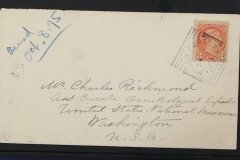 Oct. 8. 95
Mr. Charles Richmond
Asst Curate Ornithological Dept
United States National Museum
Washington
U.S.A.